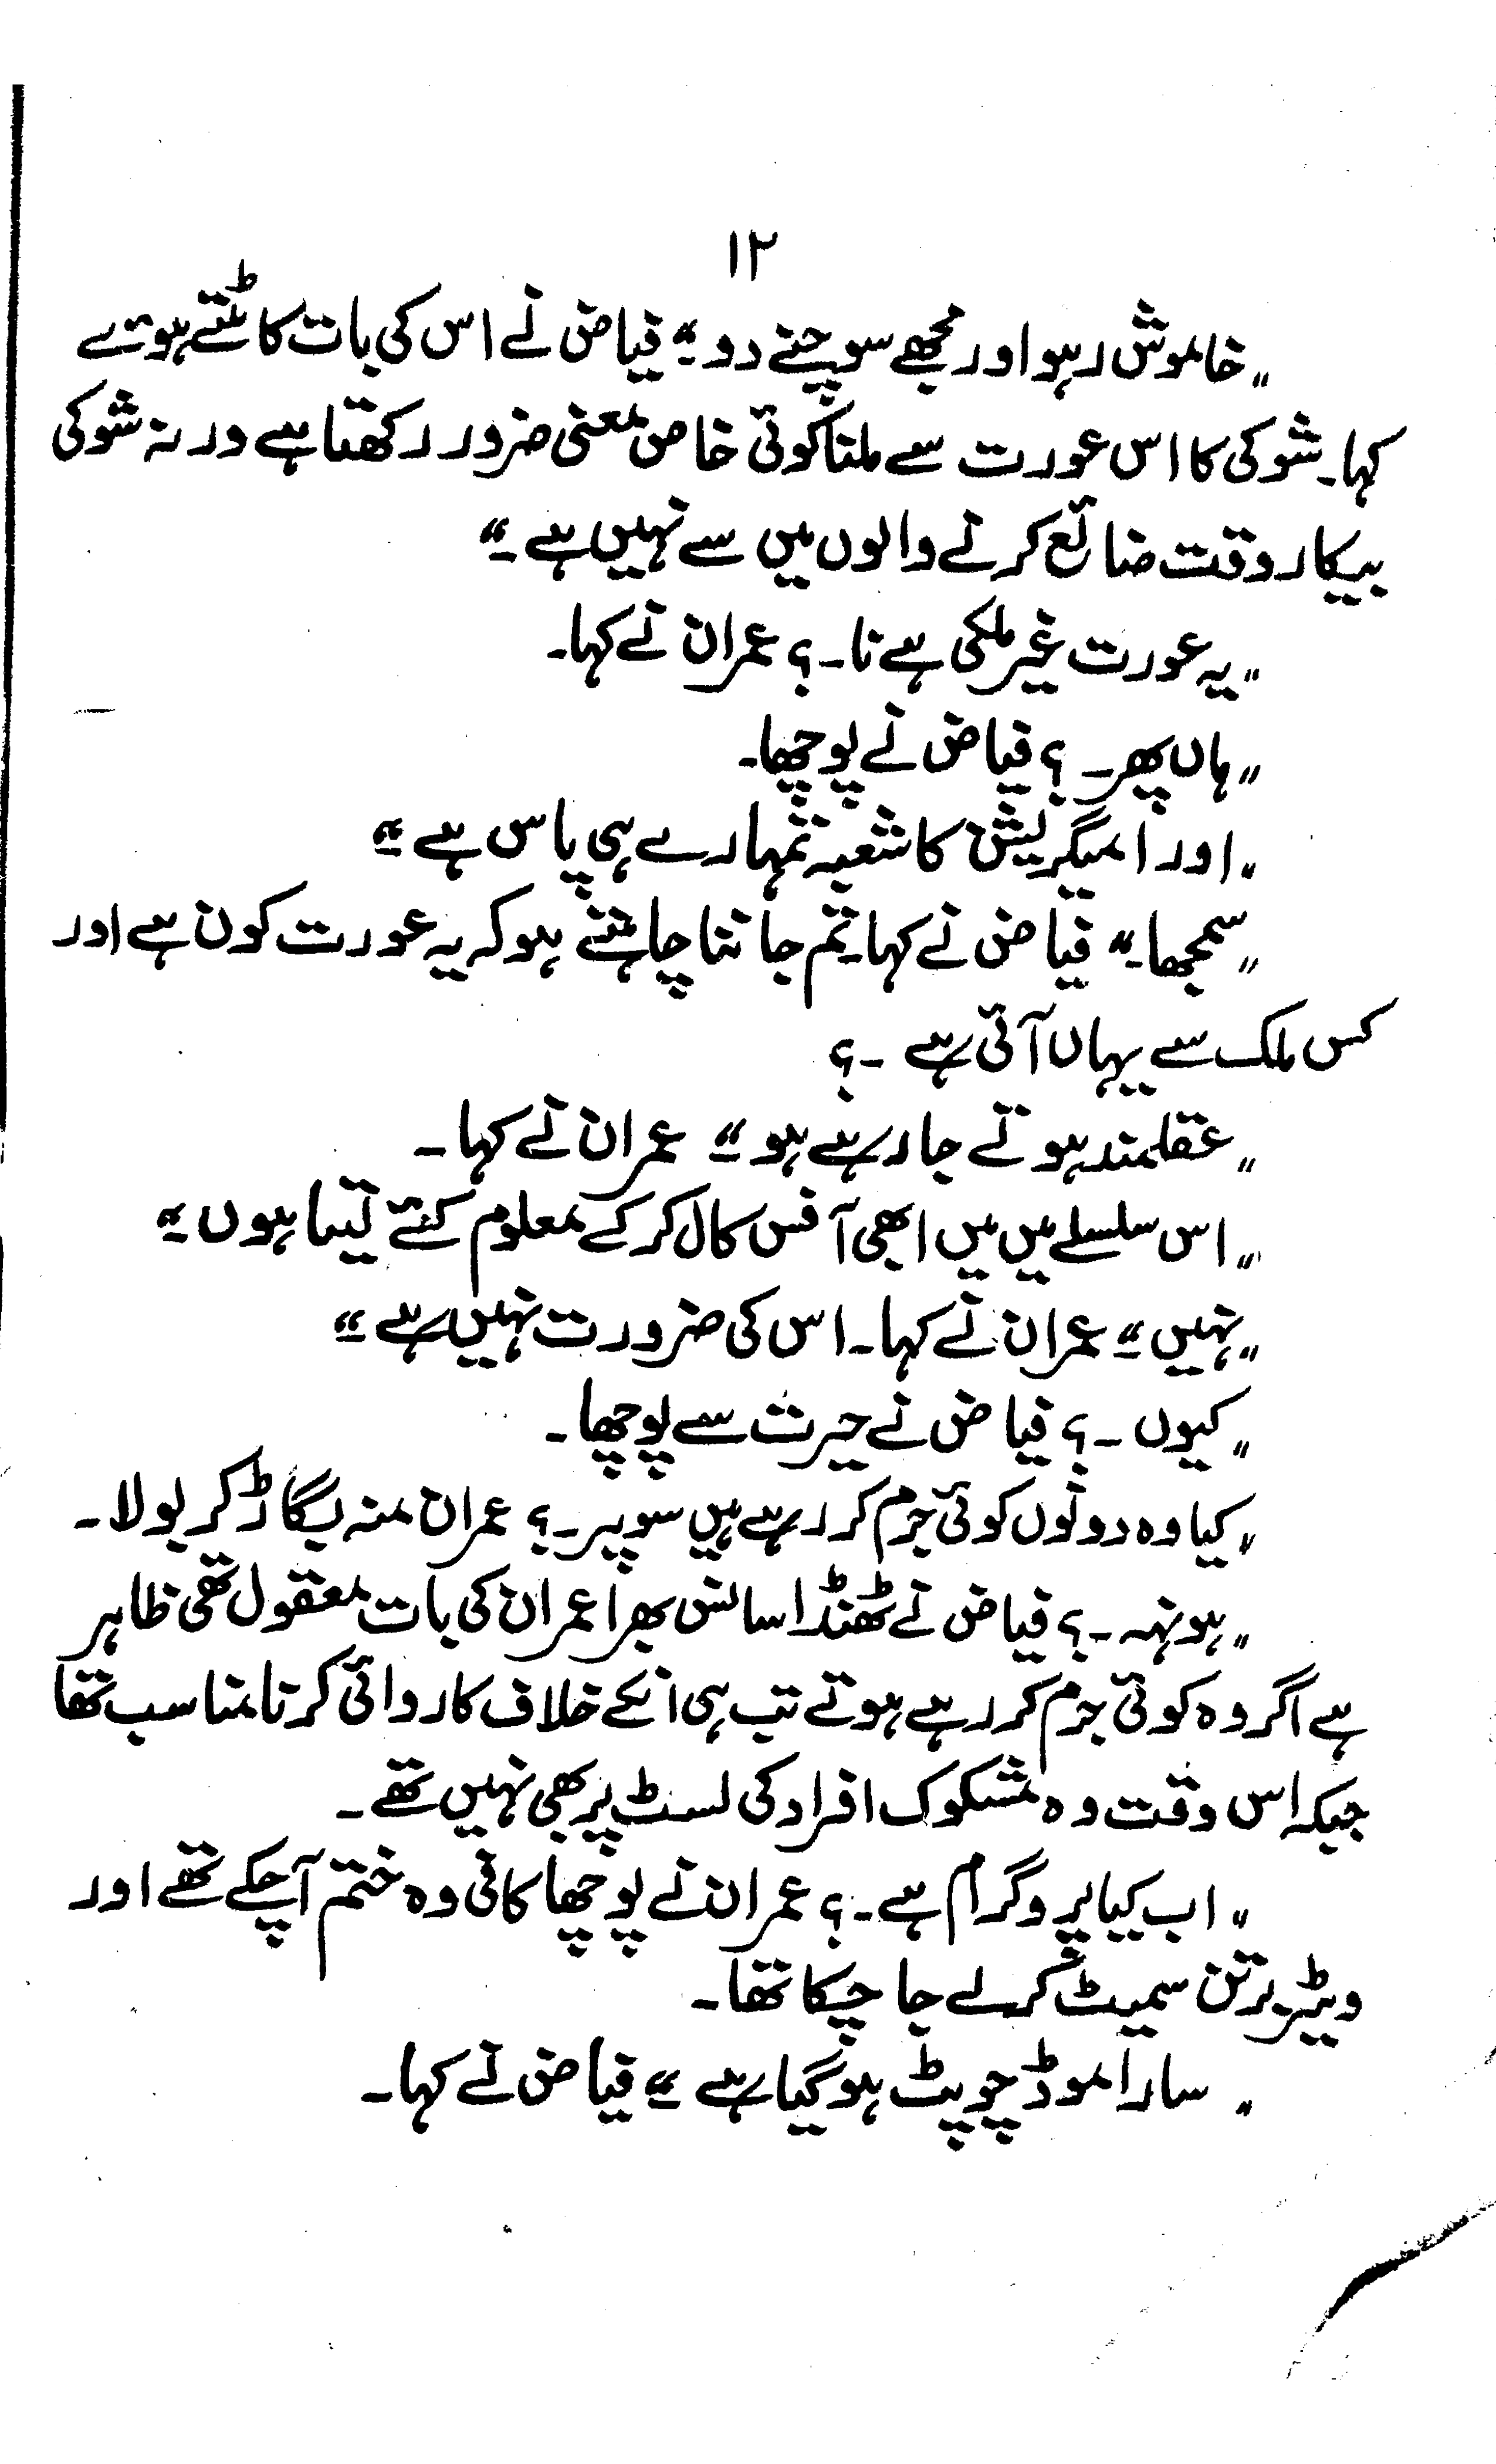 ۱۲
"خاموش رہو اور مجھے سوچنے دو۔" فیاض نے اس کی بات کاٹتے ہوئے
کہا۔ شوکی کا اس عورت سے ملنا کوئی خاص معنی ضرور رکھتا ہے ورنہ شوکی
بیکار وقت ضائع کرنے والوں میں سے نہیں ہے۔"
"یہ عورت غیر ملکی ہے نا۔؟ عمران نے کہا۔
"ہاں پھر۔؟ فیاض نے پوچھا۔
"اور امیگریشن کا شعبہ تمہارے ہی پاس ہے۔"
"سمجھا۔" فیاض نے کہا۔ تم جاننا چاہتے ہو کہ یہ عورت کون ہے اور
کس ملک سے یہاں آئی ہے۔؟
"عقلمند ہوتے جا رہے ہو۔" عمران نے کہا۔
"اس سلسلے میں میں ابھی آفس کال کر کے معلوم کئے لیتا ہوں۔"
"نہیں۔" عمران نے کہا۔ اس کی ضرورت نہیں ہے۔"
"کیوں۔؟ فیاض نے حیرت سے پوچھا۔
"کیا وہ دونوں کوئی جرم کر رہے ہیں سوپر۔؟ عمران منہ بگاڑ کر بولا۔
"ہونہہ۔؟ فیاض نے ٹھنڈا سانس بھرا عمران کی بات معقول تھی ظاہر
ہے اگر وہ کوئی جرم کر رہے ہوتے تب ہی انکے خلاف کاروائی کرنا مناسب تھا
جبکہ اس وقت وہ مشکوک افراد کی لسٹ پر بھی نہیں تھے۔
"اب کیا پروگرام ہے۔؟ عمران نے پوچھا کافی وہ ختم آچکے تھے اور
ویٹر برتن سمیٹ کر لے جا چکا تھا۔
"سارا موڈ چوپٹ ہو گیا ہے۔" فیاض نے کہا۔